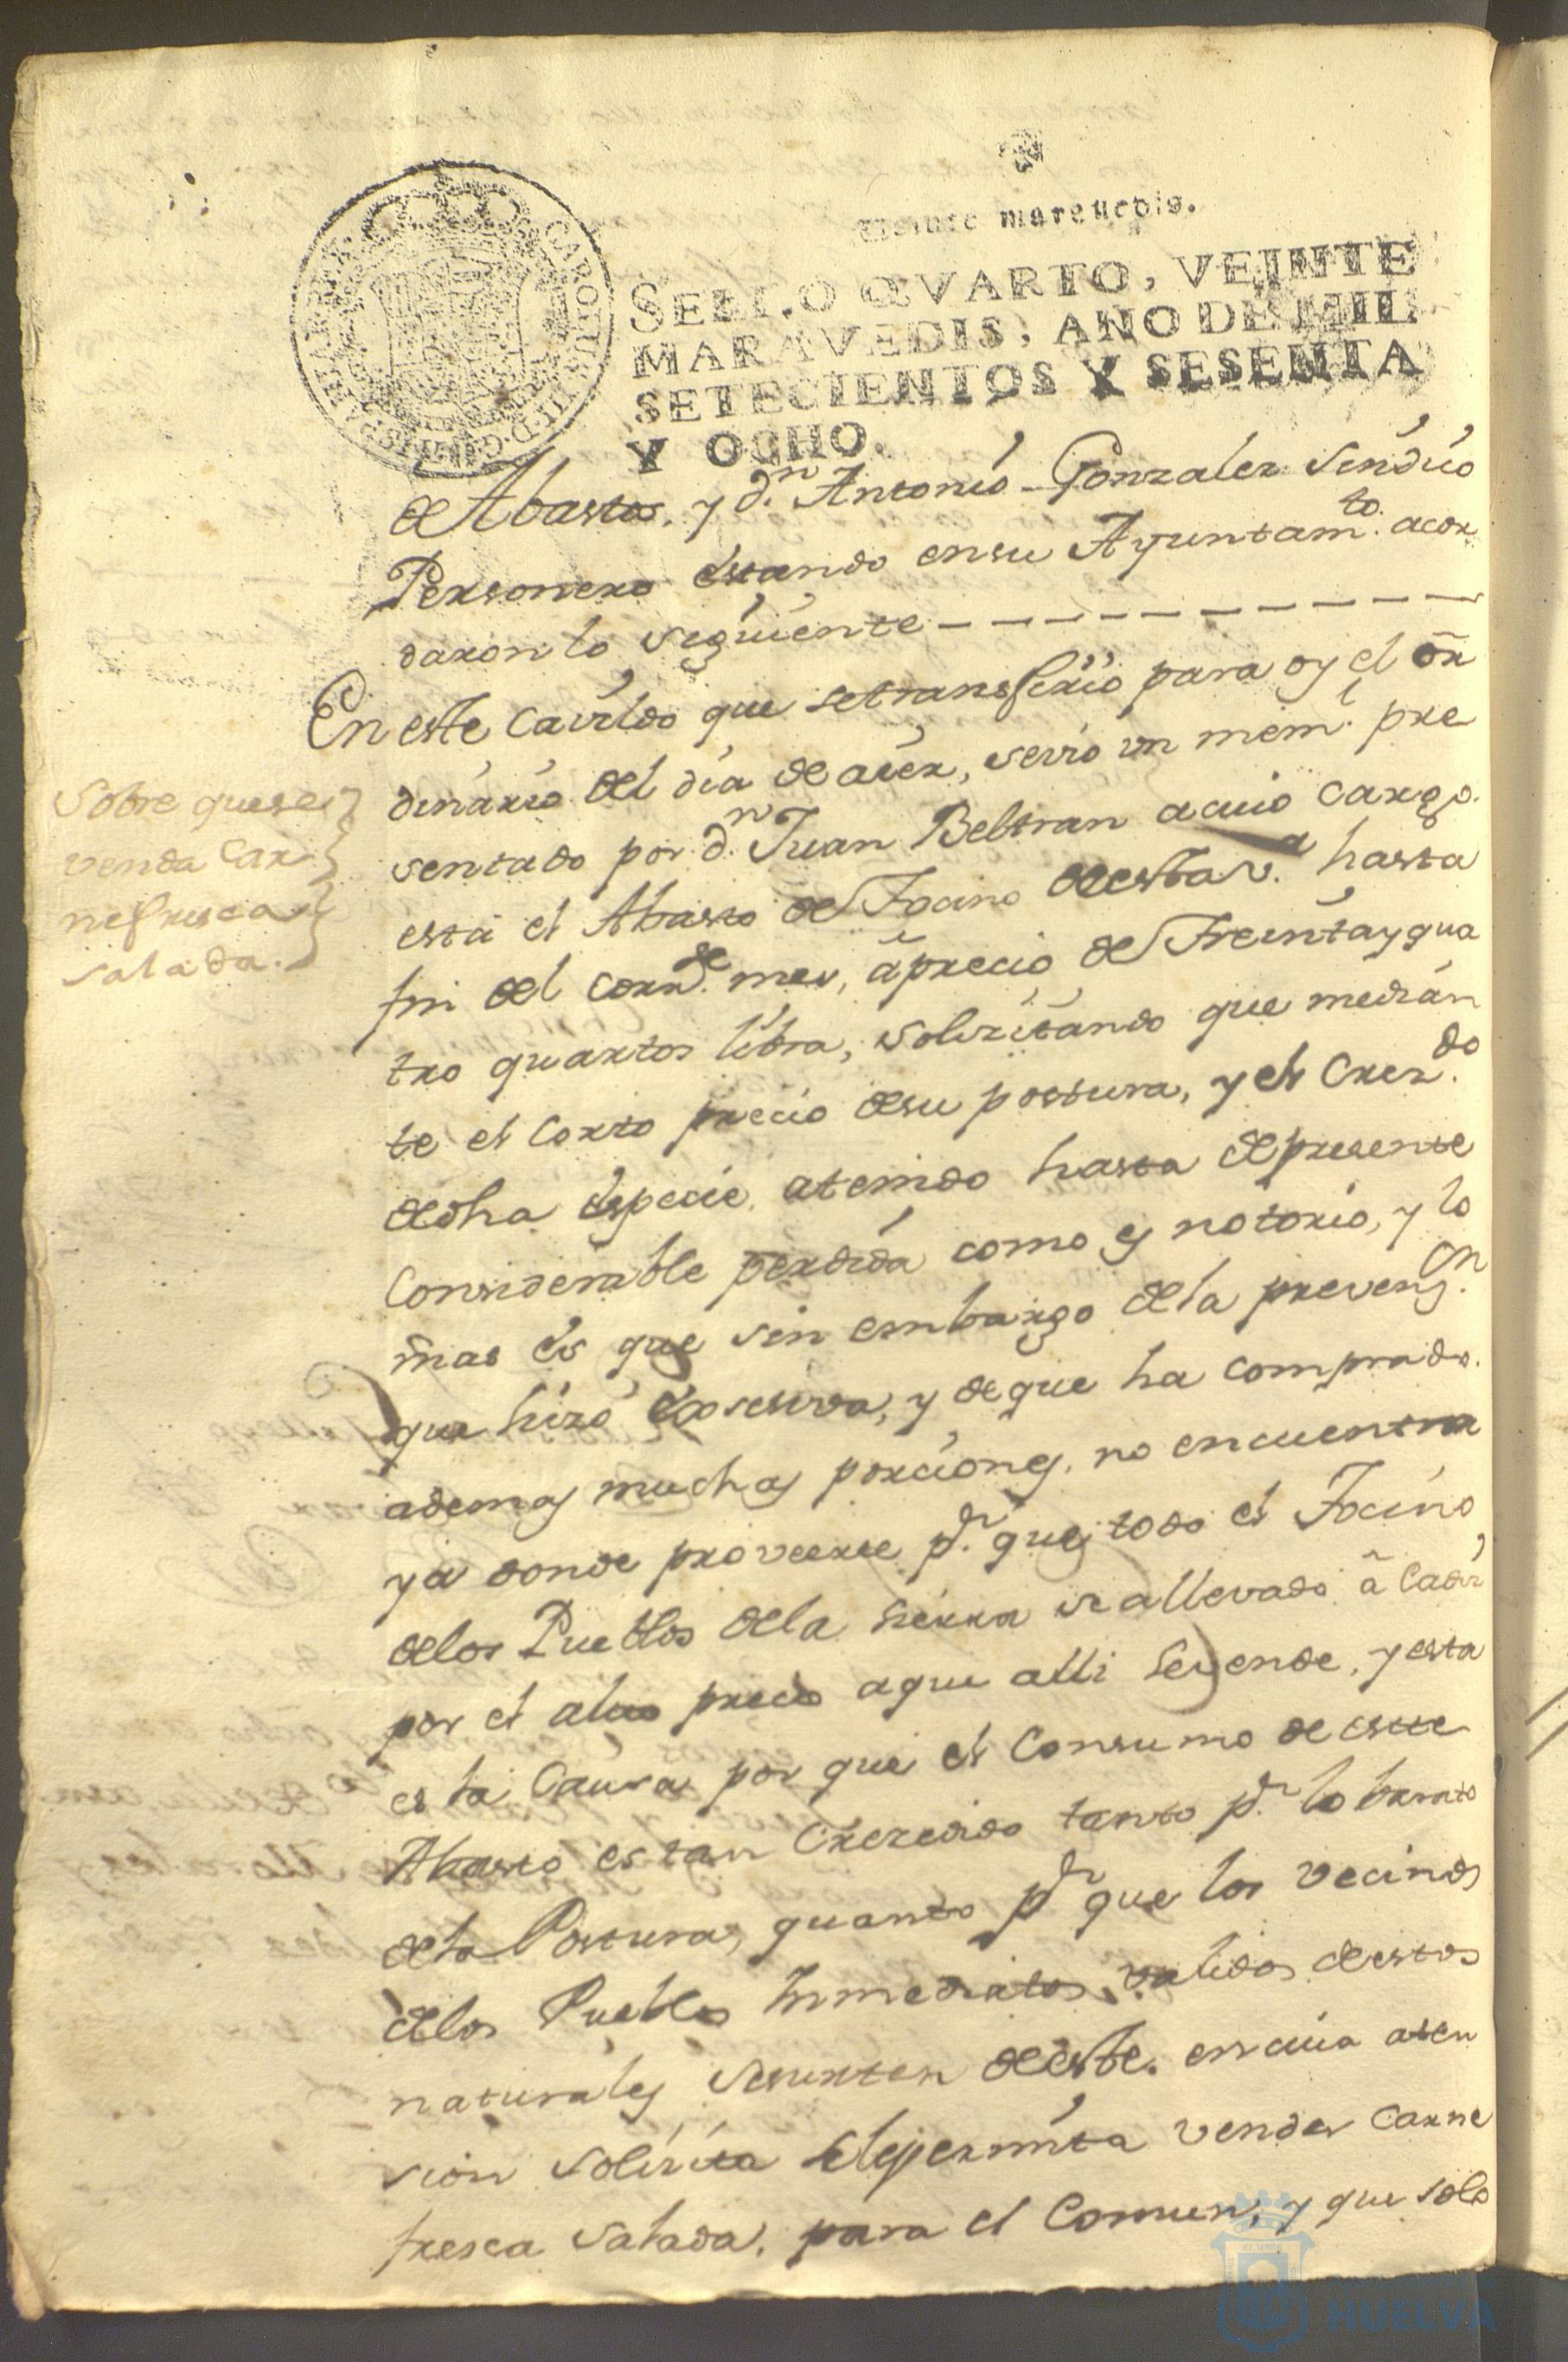 Veinte maravedis.
SELLO QVARTO, VEINTE
MARAVEDIS, AÑO DE MIL
SETECIENTOS Y SESENTA
Y OCHO.
CAROLUS III D G HISPANIAR REX
de Abastos, y dn. Antonio Gonzalez Sindico
Personero estando en su Ayuntamto. acor
daron lo siguiente
En este cavildo que se transfirio para oy el or
dinario del dia de aier, se vio un meml. pre
sentado por dn. Juan Beltran a cuio cargo
está el Abasto de Tocino de esta va. hasta
fin del corrte. mes, á precio de Treinta y qua
tro quartos libra, solizitando que median
te el corto precio de su postura, y el Crezdo.
de dha especie, a tenido hasta de presente
Considerable perdida como es notorio, y lo
mas es que sin embargo de la prevenzon.
que hizo de reserva, y de que ha comprado
ademas muchas porciones, no encuentra
ya donde proveerse pr. que todo el Tocino
de los Pueblos de la Sierra se a llevado á Cadiz
por el alto precio a que alli se vende, y esta
es la Causa por que el Consumo de este
Abasto es tan Crezedido tanto pr. lo barato
de la Postura, quanto pr que los vecinos
de los Pueblos Inmediatos validos de estos
naturales se surten de este. en cuia aten
sion solizita se le permita vender carne
fresca salada, para el Comun, y que solo
Sobre que se
venda Car
ne fresca
salada.
HUELVA